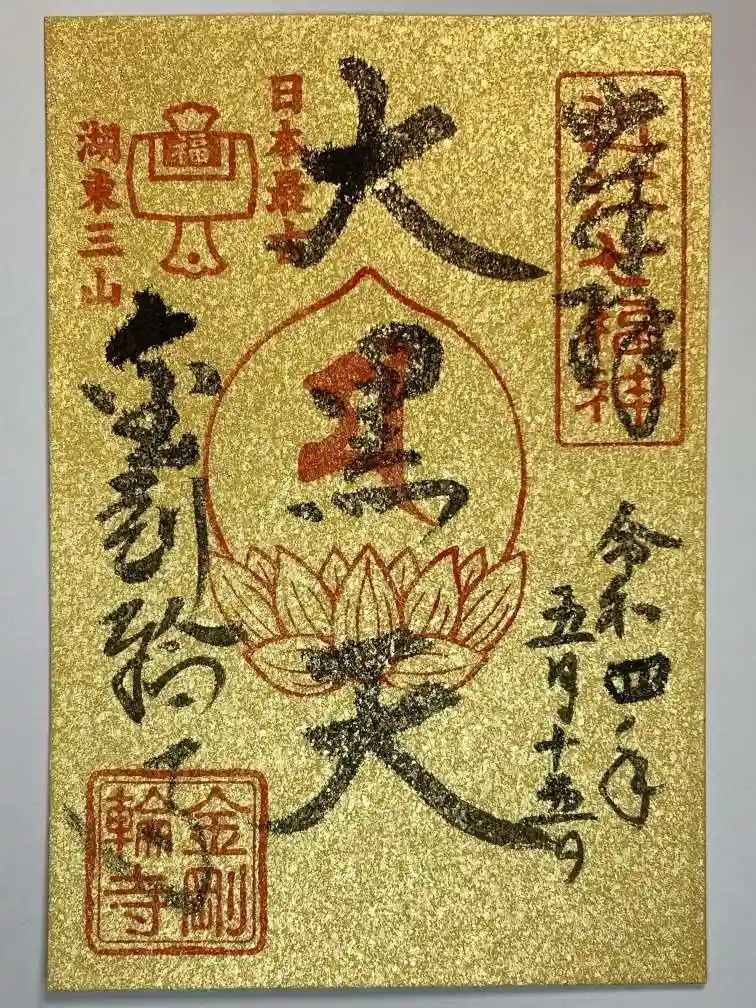 近江七福神
奉拝
令和四年
五月十五日
大黒天
日本最大
福
湖東三山
金剛輪寺
金剛
輪寺